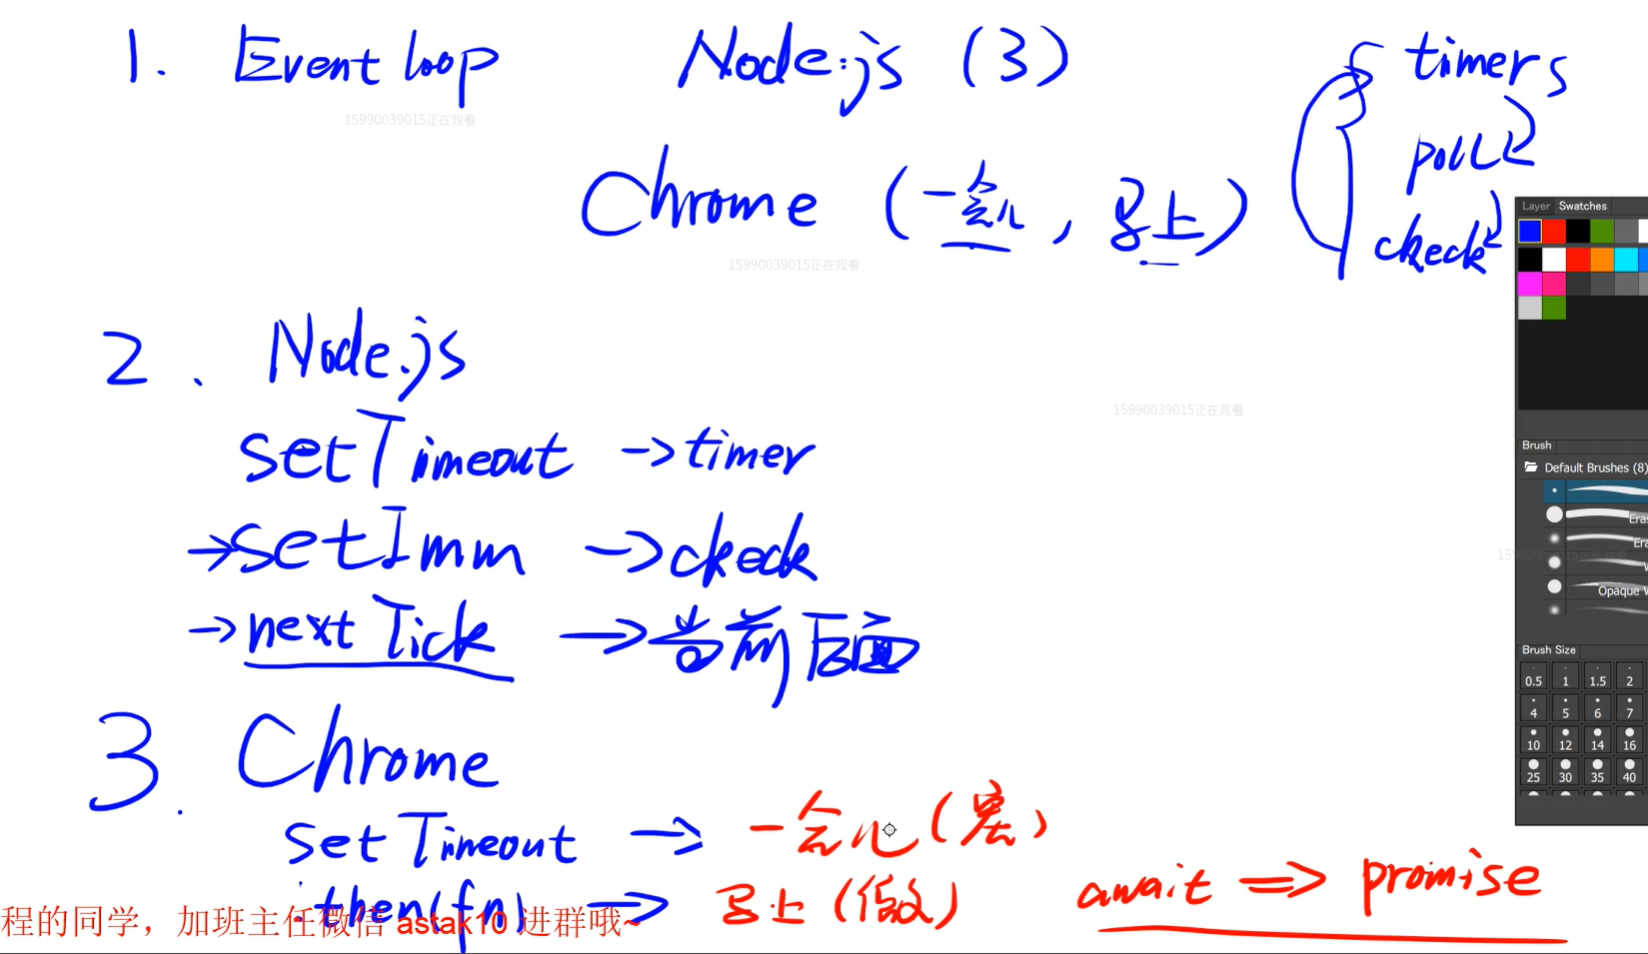 1. Event loop Node.js (3)
Chrome (一会儿, 马上)
timers
poll
check
15990039015正在观看
15990039015正在观看
15990039015正在观看
2. Node.js
setTimeout → timer
→ setImm → check
→ nextTick → 当前后面
3. Chrome
setTimeout → 一会儿 (宏)
.then(fn) → 马上 (微)
await => promise
程的同学，加班主任微信 astak10 进群哦~
Layer Swatches
Brush
Default Brushes (8)
Opaque
Brush Size
0.5 1 1.5 2
4 5 6 7
10 12 14 16
25 30 35 40